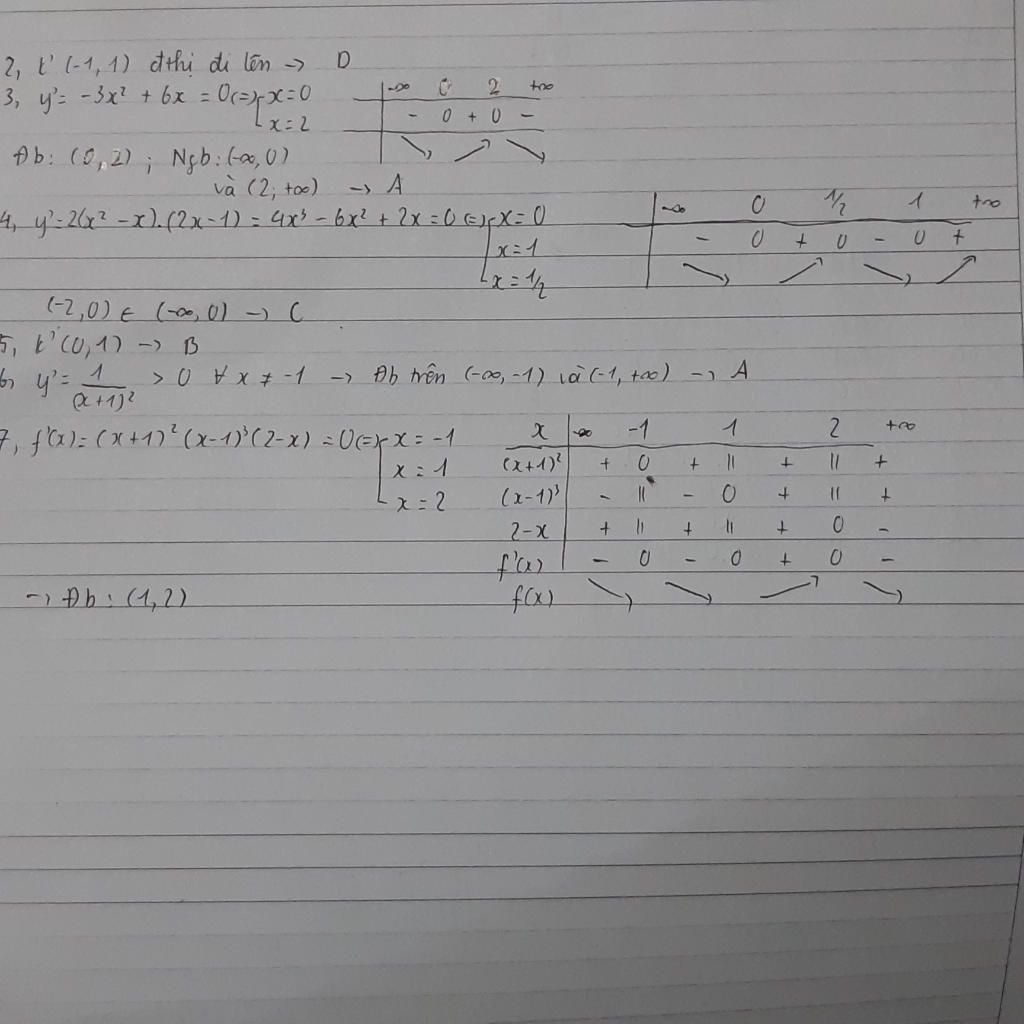 2, t' (-1, 1) đthị đi lên → D
3, y' = -3x² + 6x = 0 <=> [ x = 0
x = 2
-∞ 0 2 +∞
- 0 + 0 -
↘ ↗ ↘
Đb: (0, 2) ; Ngb: (-∞, 0)
và (2; +∞) → A
4, y' = 2(x² - x).(2x - 1) = 4x³ - 6x² + 2x = 0 <=> [ x = 0
x = 1
x = 1/2
-∞ 0 1/2 1 +∞
- 0 + 0 - 0 +
↘ ↗ ↘ ↗
(-2, 0) ∈ (-∞, 0) → C
5, t' (0, 1) → B
6, y' = 1/(x+1)² > 0 ∀ x ≠ -1 → Đb trên (-∞, -1) và (-1, +∞) → A
7, f'(x) = (x+1)² (x-1)³ (2-x) = 0 <=> [ x = -1
x = 1
x = 2
x -∞ -1 1 2 +∞
(x+1)² + 0 + || + || +
(x-1)³ - || - 0 + || +
2-x + || + || + 0 -
f'(x) - 0 - 0 + 0 -
f(x) ↘ ↘ ↗ ↘
→ Đb : (1, 2)